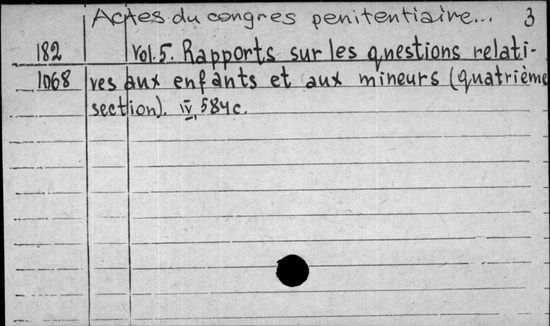 Actes du congres penitentiaire... 3
182 Vol. 5. Rapports sur les questions relati-
1068 ves aux enfants et aux mineurs (quatrième
section). IV, 584 c.